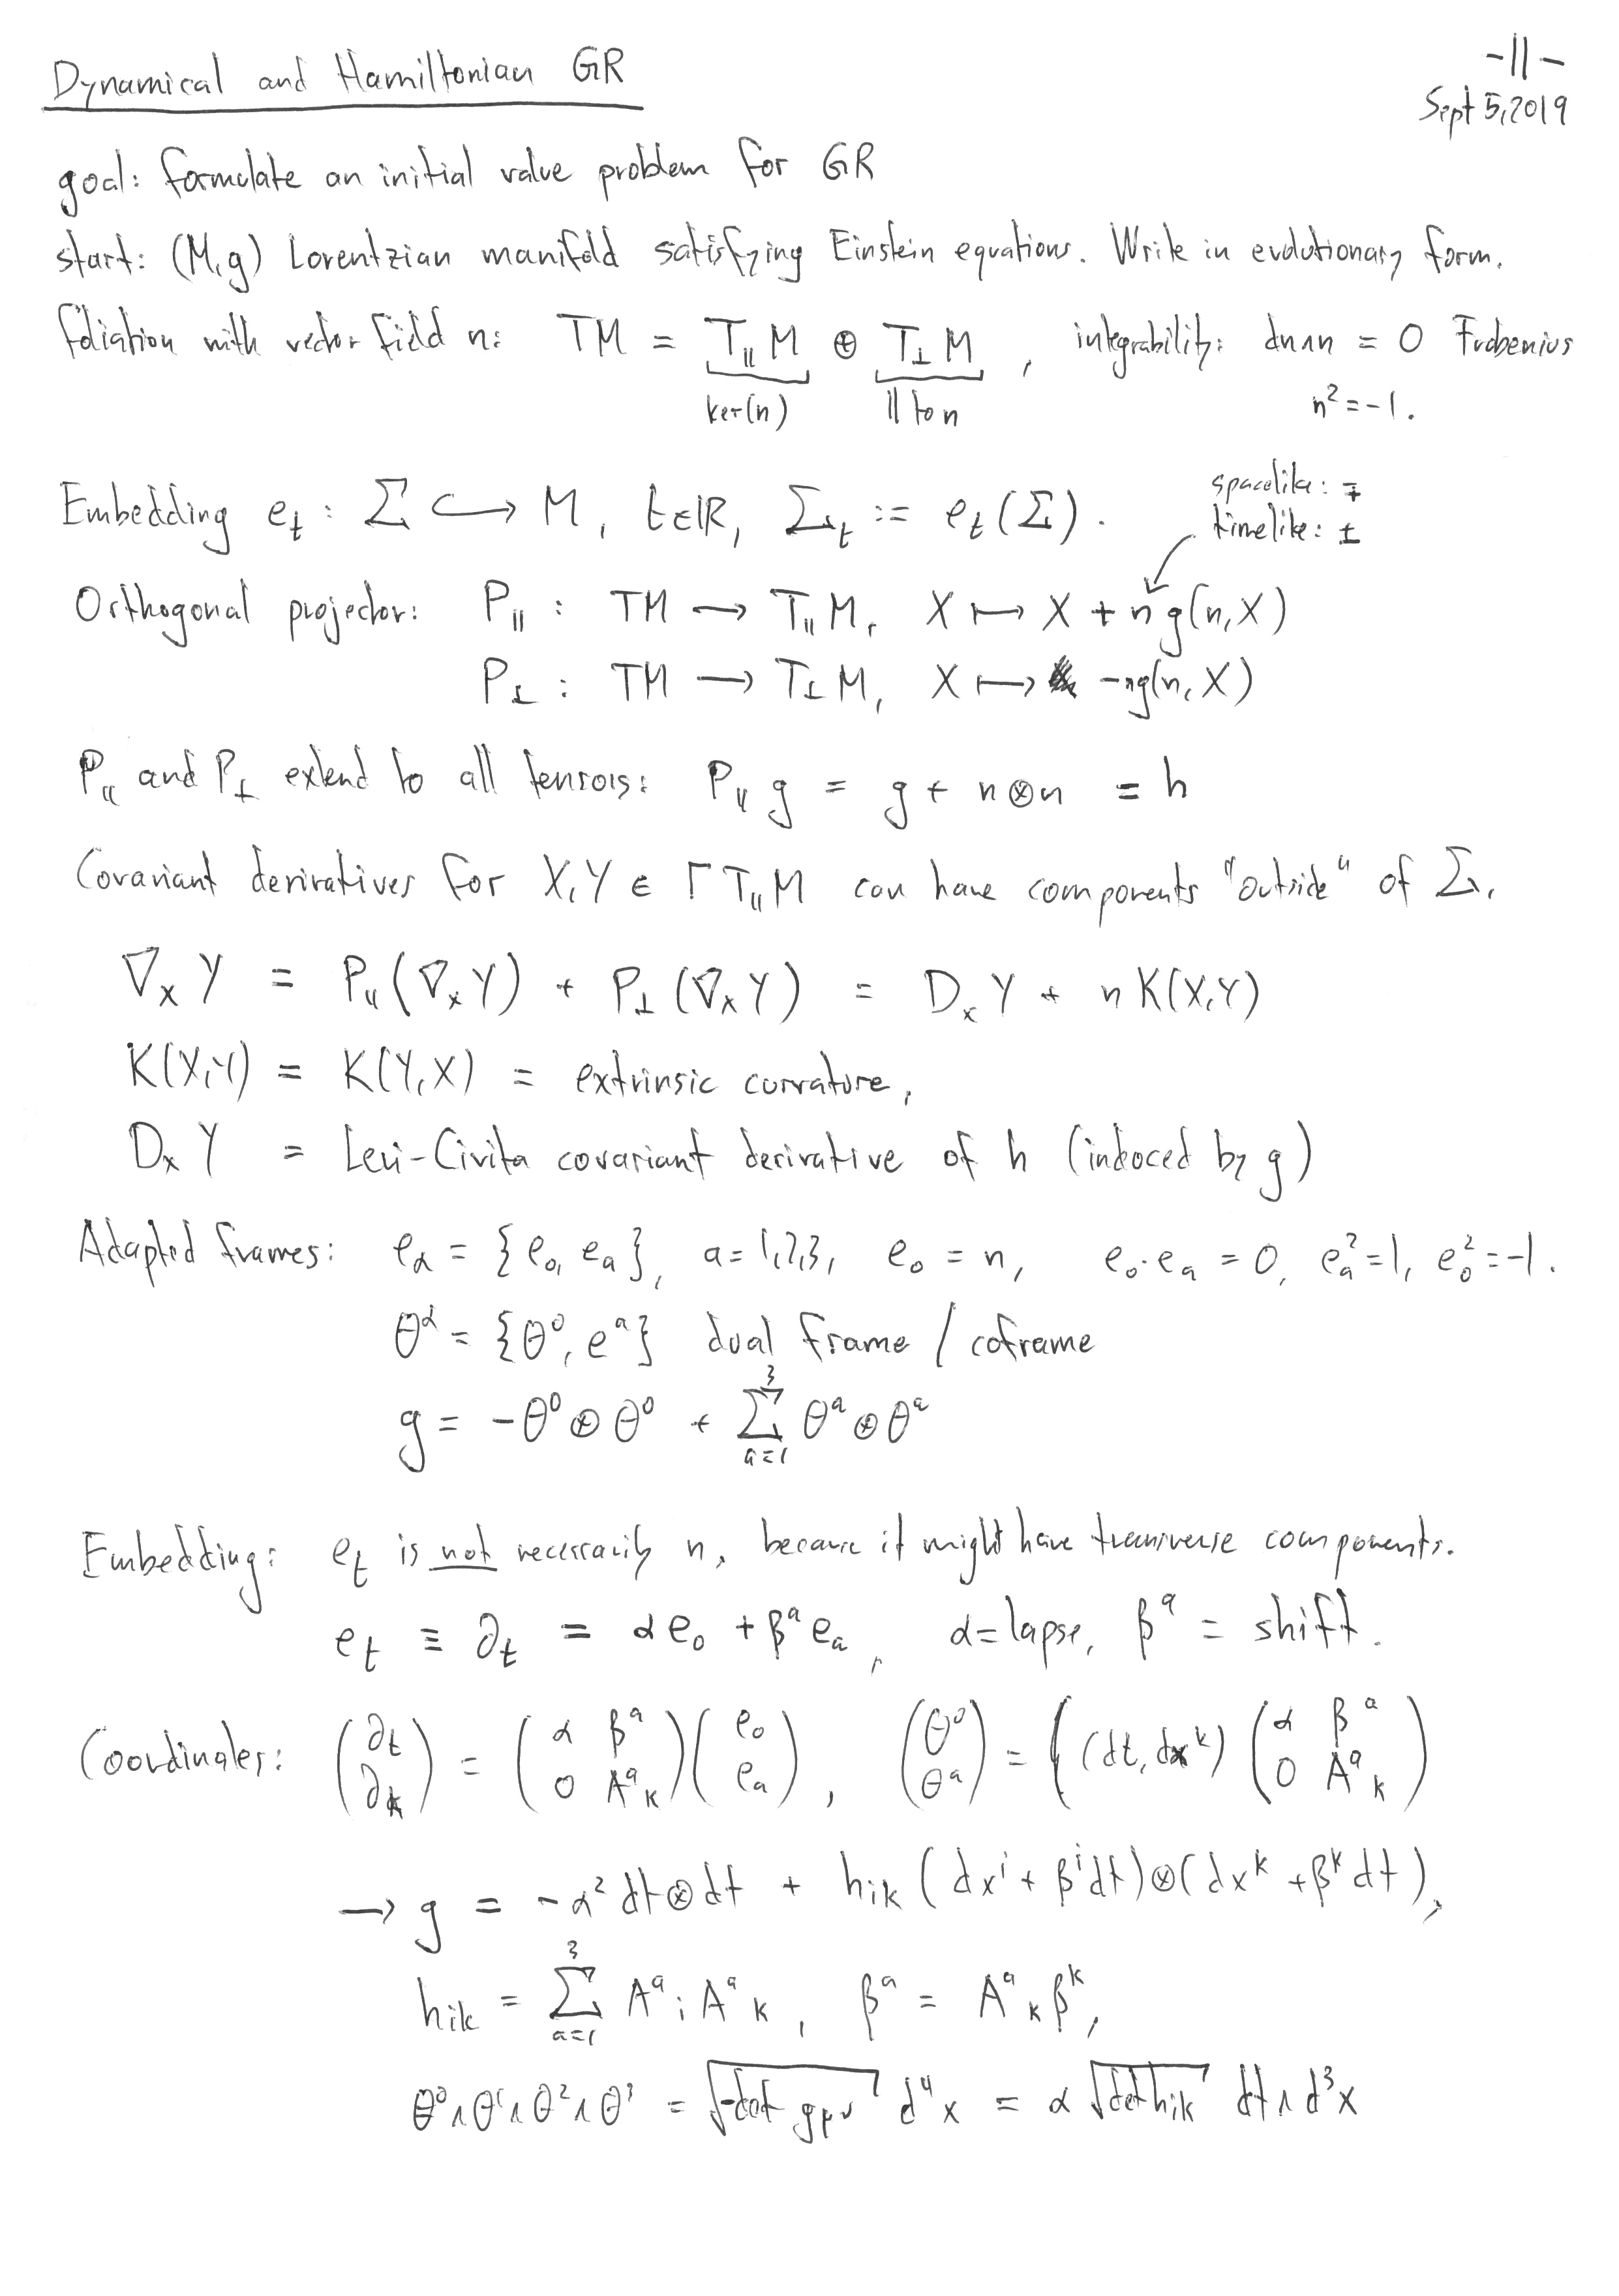 Dynamical and Hamiltonian GR
-11-
Sept 5, 2019
goal: formulate an initial value problem for GR
start: (M,g) Lorentzian manifold satisfying Einstein equations. Write in evolutionary form.
foliation with vector field n: TM = T∥M ⊕ T⊥M, integrability: dn∧n = 0 Frobenius
ker(n) ∥ to n n² = -1.
spacelike: ∓
timelike: ±
Embedding e_t : Σ ↪ M, t∈ℝ, Σ_t := e_t(Σ).
Orthogonal projector: P∥ : TM → T∥M, X ↦ X + n g(n,X)
P⊥ : TM → T⊥M, X ↦ -ng(n,X)
P∥ and P⊥ extend to all tensors: P∥ g = g + n⊗n = h
Covariant derivatives for X,Y ∈ Γ T∥M can have components "outside" of Σ.
∇_X Y = P∥(∇_X Y) + P⊥(∇_X Y) = D_X Y + n K(X,Y)
K(X,Y) = K(Y,X) = extrinsic curvature,
D_X Y = Levi-Civita covariant derivative of h (induced by g)
Adapted frames: e_α = {e_0, e_a}, a=1,2,3, e_0 = n, e_0·e_a = 0, e_a²=1, e_0²=-1.
θ^α = {θ^0, e^a} dual frame / coframe
g = -θ^0⊗θ^0 + Σ_{a=1}^3 θ^a⊗θ^a
Embedding: e_t is not necessarily n, because it might have transverse components.
e_t ≡ ∂_t = α e_0 + β^a e_a, α=lapse, β^a = shift.
Coordinates: (∂_t ∂_k) = (α β^a 0 A^a_k)(e_0 e_a), (θ^0 θ^a) = ((dt, dx^k) (α β^a 0 A^a_k)
→ g = -α² dt⊗dt + h_ik (dx^i + β^i dt)⊗(dx^k + β^k dt),
h_ik = Σ_{a=1}^3 A^a_i A^a_k, β^a = A^a_k β^k,
θ^0∧θ^1∧θ^2∧θ^3 = √(-det g_μν) d⁴x = α √(det h_ik) dt∧d³x